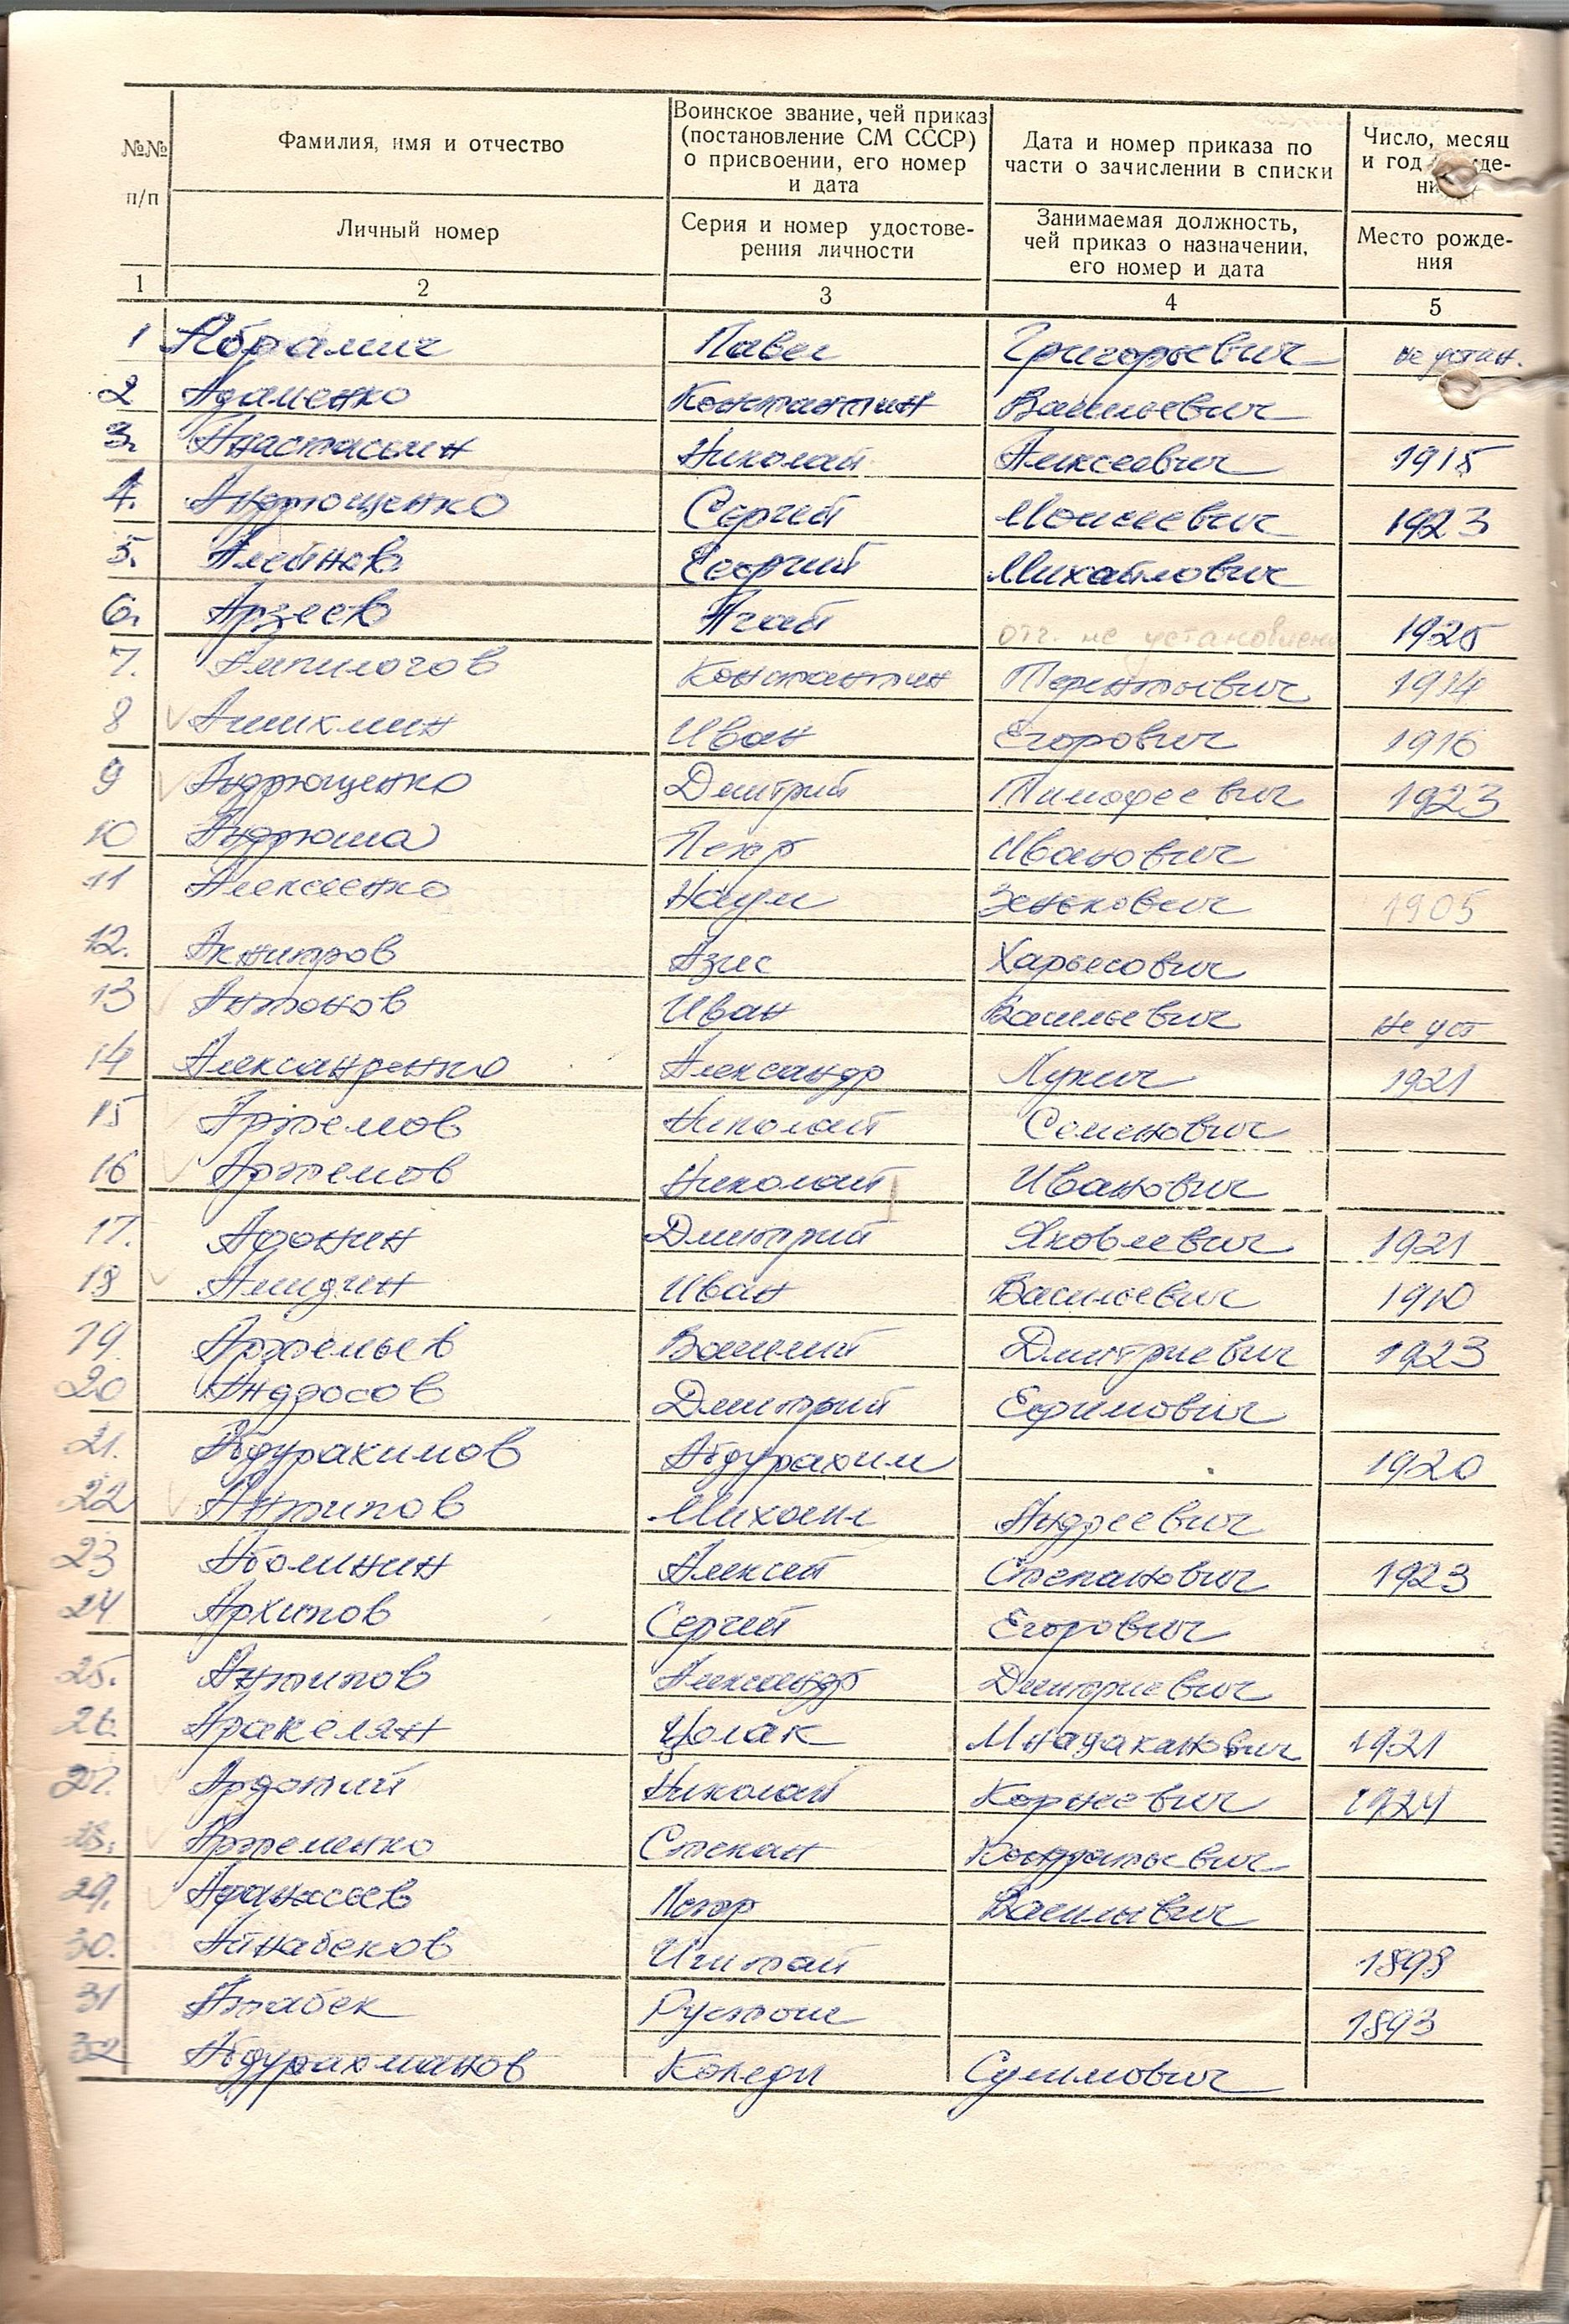 №№ п/п
Фамилия, имя и отчество
Личный номер
Воинское звание, чей приказ
(постановление СМ СССР)
о присвоении, его номер
и дата
Серия и номер удостове-
рения личности
Дата и номер приказа по
части о зачислении в списки
Занимаемая должность,
чей приказ о назначении,
его номер и дата
Число, месяц
и год
Место рожде-
ния
1 2 3 4 5
1 Абрамич Павел Григорьевич не устан.
2 Адаменко Константин Васильевич
3. Анастасьин Николай Алексеевич 1915
4. Андрющенко Сергей Моисеевич 1923
5. Алейнов Георгий Михайлович
6. Арзеев Агай отч. не установлено 1925
7. Ампилогов Константин Терентьевич 1914
8 Ашихмин Иван Егорович 1916
9 Андрющенко Дмитрий Тимофеевич 1923
10 Андрюша Петр Иванович
11 Алексеенко Наум Зенькович 1905
12. Азис Харьесович
13 Антонов Иван Васильевич не уст
14 Александренко Александр Лукич 1921
15 Артемов Николай Семенович
16 Артемов Николай Иванович
17. Афонин Дмитрий Яковлевич 1921
18 Иван Васильевич 1910
19. Артемьев Василий Дмитриевич 1923
20 Андросов Дмитрий Ефимович
21. Абдурахимов Абдурахим 1920
22 Антипов Михаил Андреевич
23 Абоминин Алексей Степанович 1923
24 Архипов Сергей Егорович
25. Антипов Александр Дмитриевич
26. Аракелян Цолак Мнадаканович 1921
27. Николай Корнеевич 1924
28. Артеменко Степан Кондратьевич
29. Афанасьев Петр Васильевич
30. Айнабеков Игитай 1898
31 Атабек Рустом 1893
32 Абдурахманов Коледи Сулимович